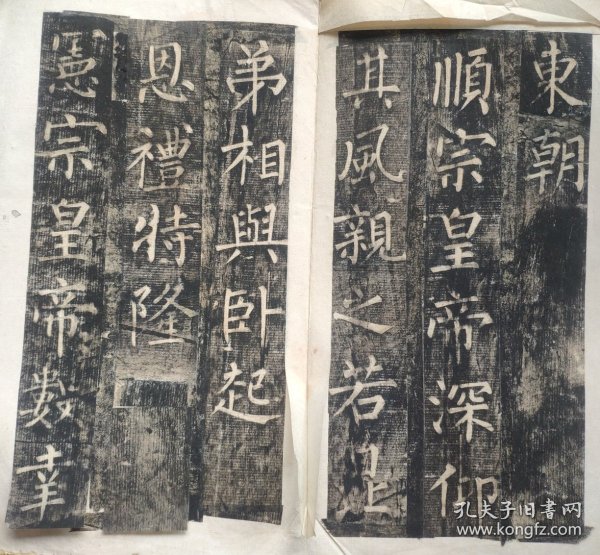 東朝
順宗皇帝深仰
其風親之若昆
弟相與卧起
恩禮特隆
憲宗皇帝數幸
孔夫子旧书网
www.kongfz.com